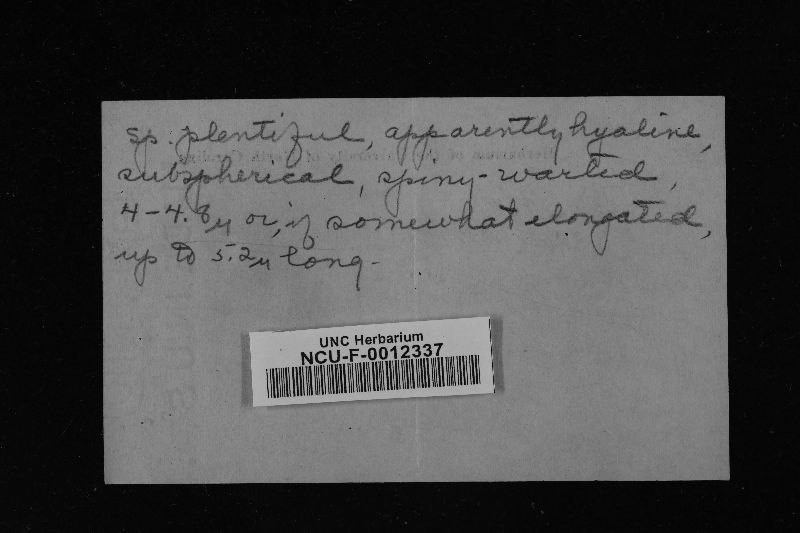 sp. plentiful, apparently hyaline,
subspherical, spiny-warted,
4-4.8µ or, if somewhat elongated,
up to 5.2µ long.
UNC Herbarium
NCU-F-0012337